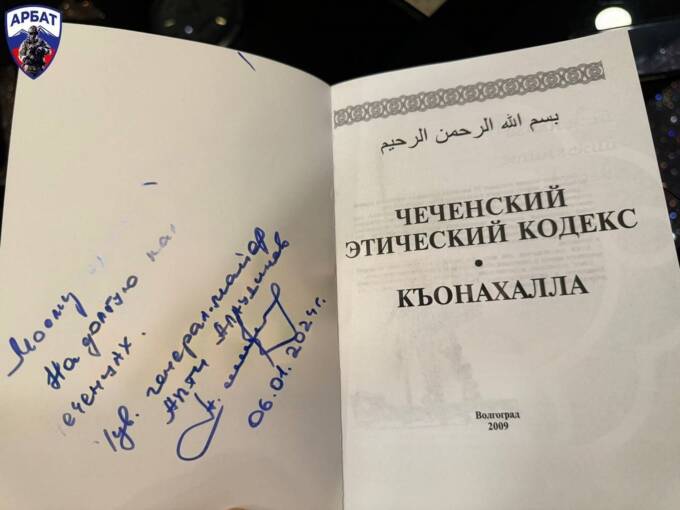 АРБАТ
Моему
На долгую па
чеченцях.
Ув. генерал-майор
Апти Алаудинов
06.01.2024г.
بسم الله الرحمن الرحيم
ЧЕЧЕНСКИЙ
ЭТИЧЕСКИЙ КОДЕКС
•
КЪОНАХАЛЛА
Волгоград
2009